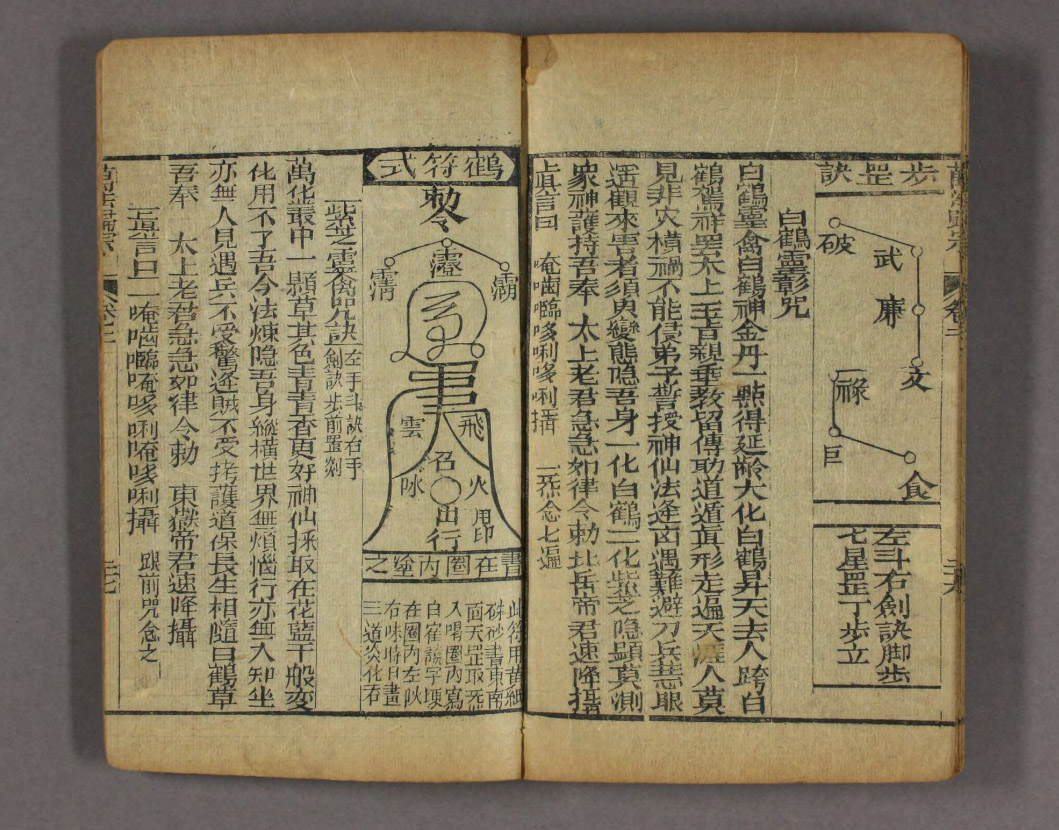 步罡訣
破
武
廉
文
祿
巨
食
左斗右劍訣脚步
七星罡丁步立
白鶴靈彰咒
白鶴靈禽白鶴神金丹一點得延齡大化白鶴昇天去人跨白
鶴駕祥罡太上玉旨親垂教留傳助道遁真形走遍天涯人莫
見非灾橫禍不能侵弟子普授神仙法逢凶遇難避刀兵慧眼
遥觀來害者須臾變態隐吾身一化白鶴二化紫芝隐顯莫測
衆神護持吾奉 太上老君急急如律令勅北岳帝君速降攝
真言曰 唵嚙囑哆唎哆唎攝 一炁念七遍
鶴符式
勅令
靈
霱
飛
雲
火
召
出行
用印
書在圈内塗之
此符用黄紙
硃砂書東南
面天罡取炁
入喝圈内寫
白寉諱字埂
在圈内左吹
三道炎化吞
紫芝靈禽咒訣
左手斗訣右手
劍訣步前置剗
萬花叢中一顆草其色青青香更好神仙採取在花籃千般变
化用不了吾今法煉隐吾身縱橫世界無煩惱行亦無人知坐
亦無人見遇兵不受驚逢賊不受拷護道保長生相隨白鶴草
吾奉 太上老君急急如律令勅 東嶽帝君速降攝
真言曰 唵嚙囑唵哆唎唵哆唎攝 跟前咒念之